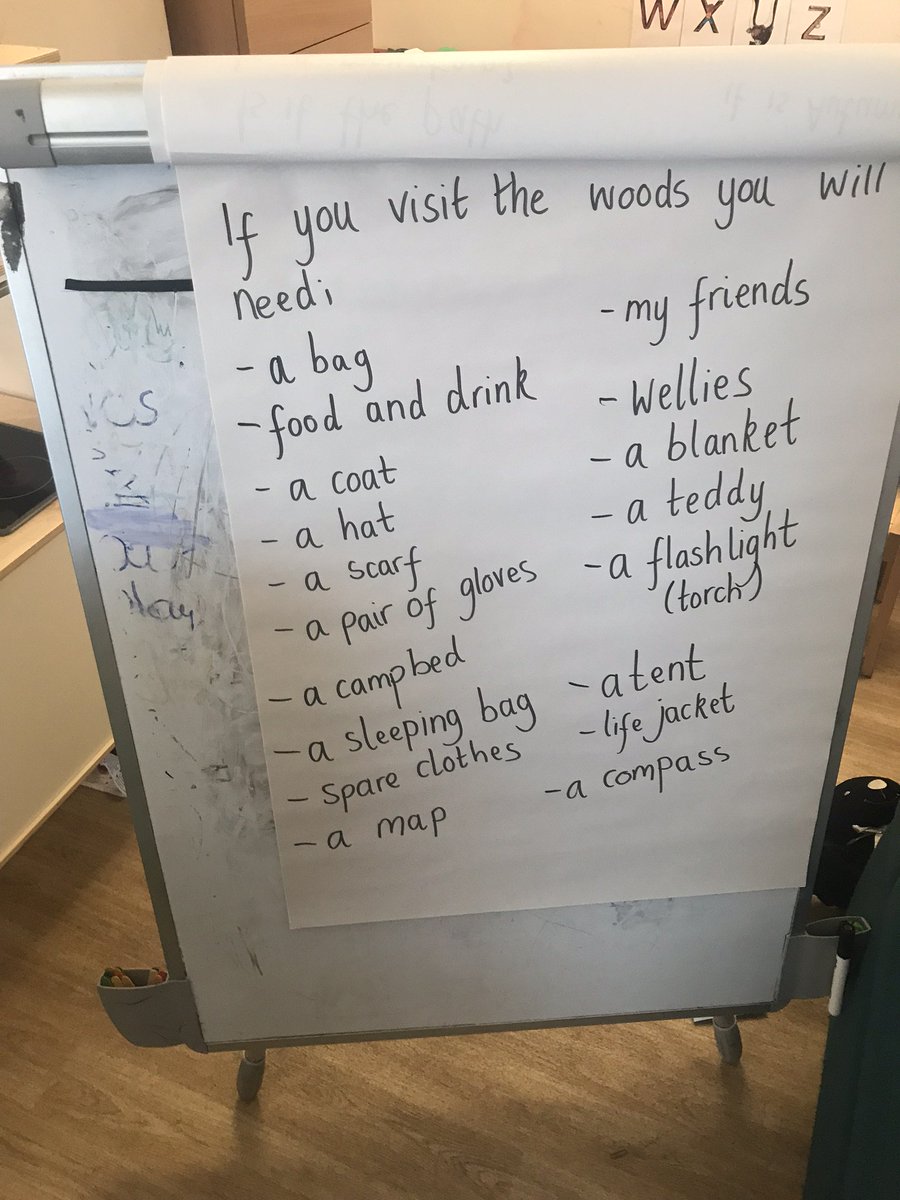 W X y Z
If you visit the woods you will
need;
- a bag
- food and drink
- a coat
- a hat
- a scarf
- a pair of gloves
- a campbed
- a sleeping bag
- spare clothes
- a map
- my friends
- wellies
- a blanket
- a teddy
- a flashlight
(torch)
- a tent
- life jacket
- a compass